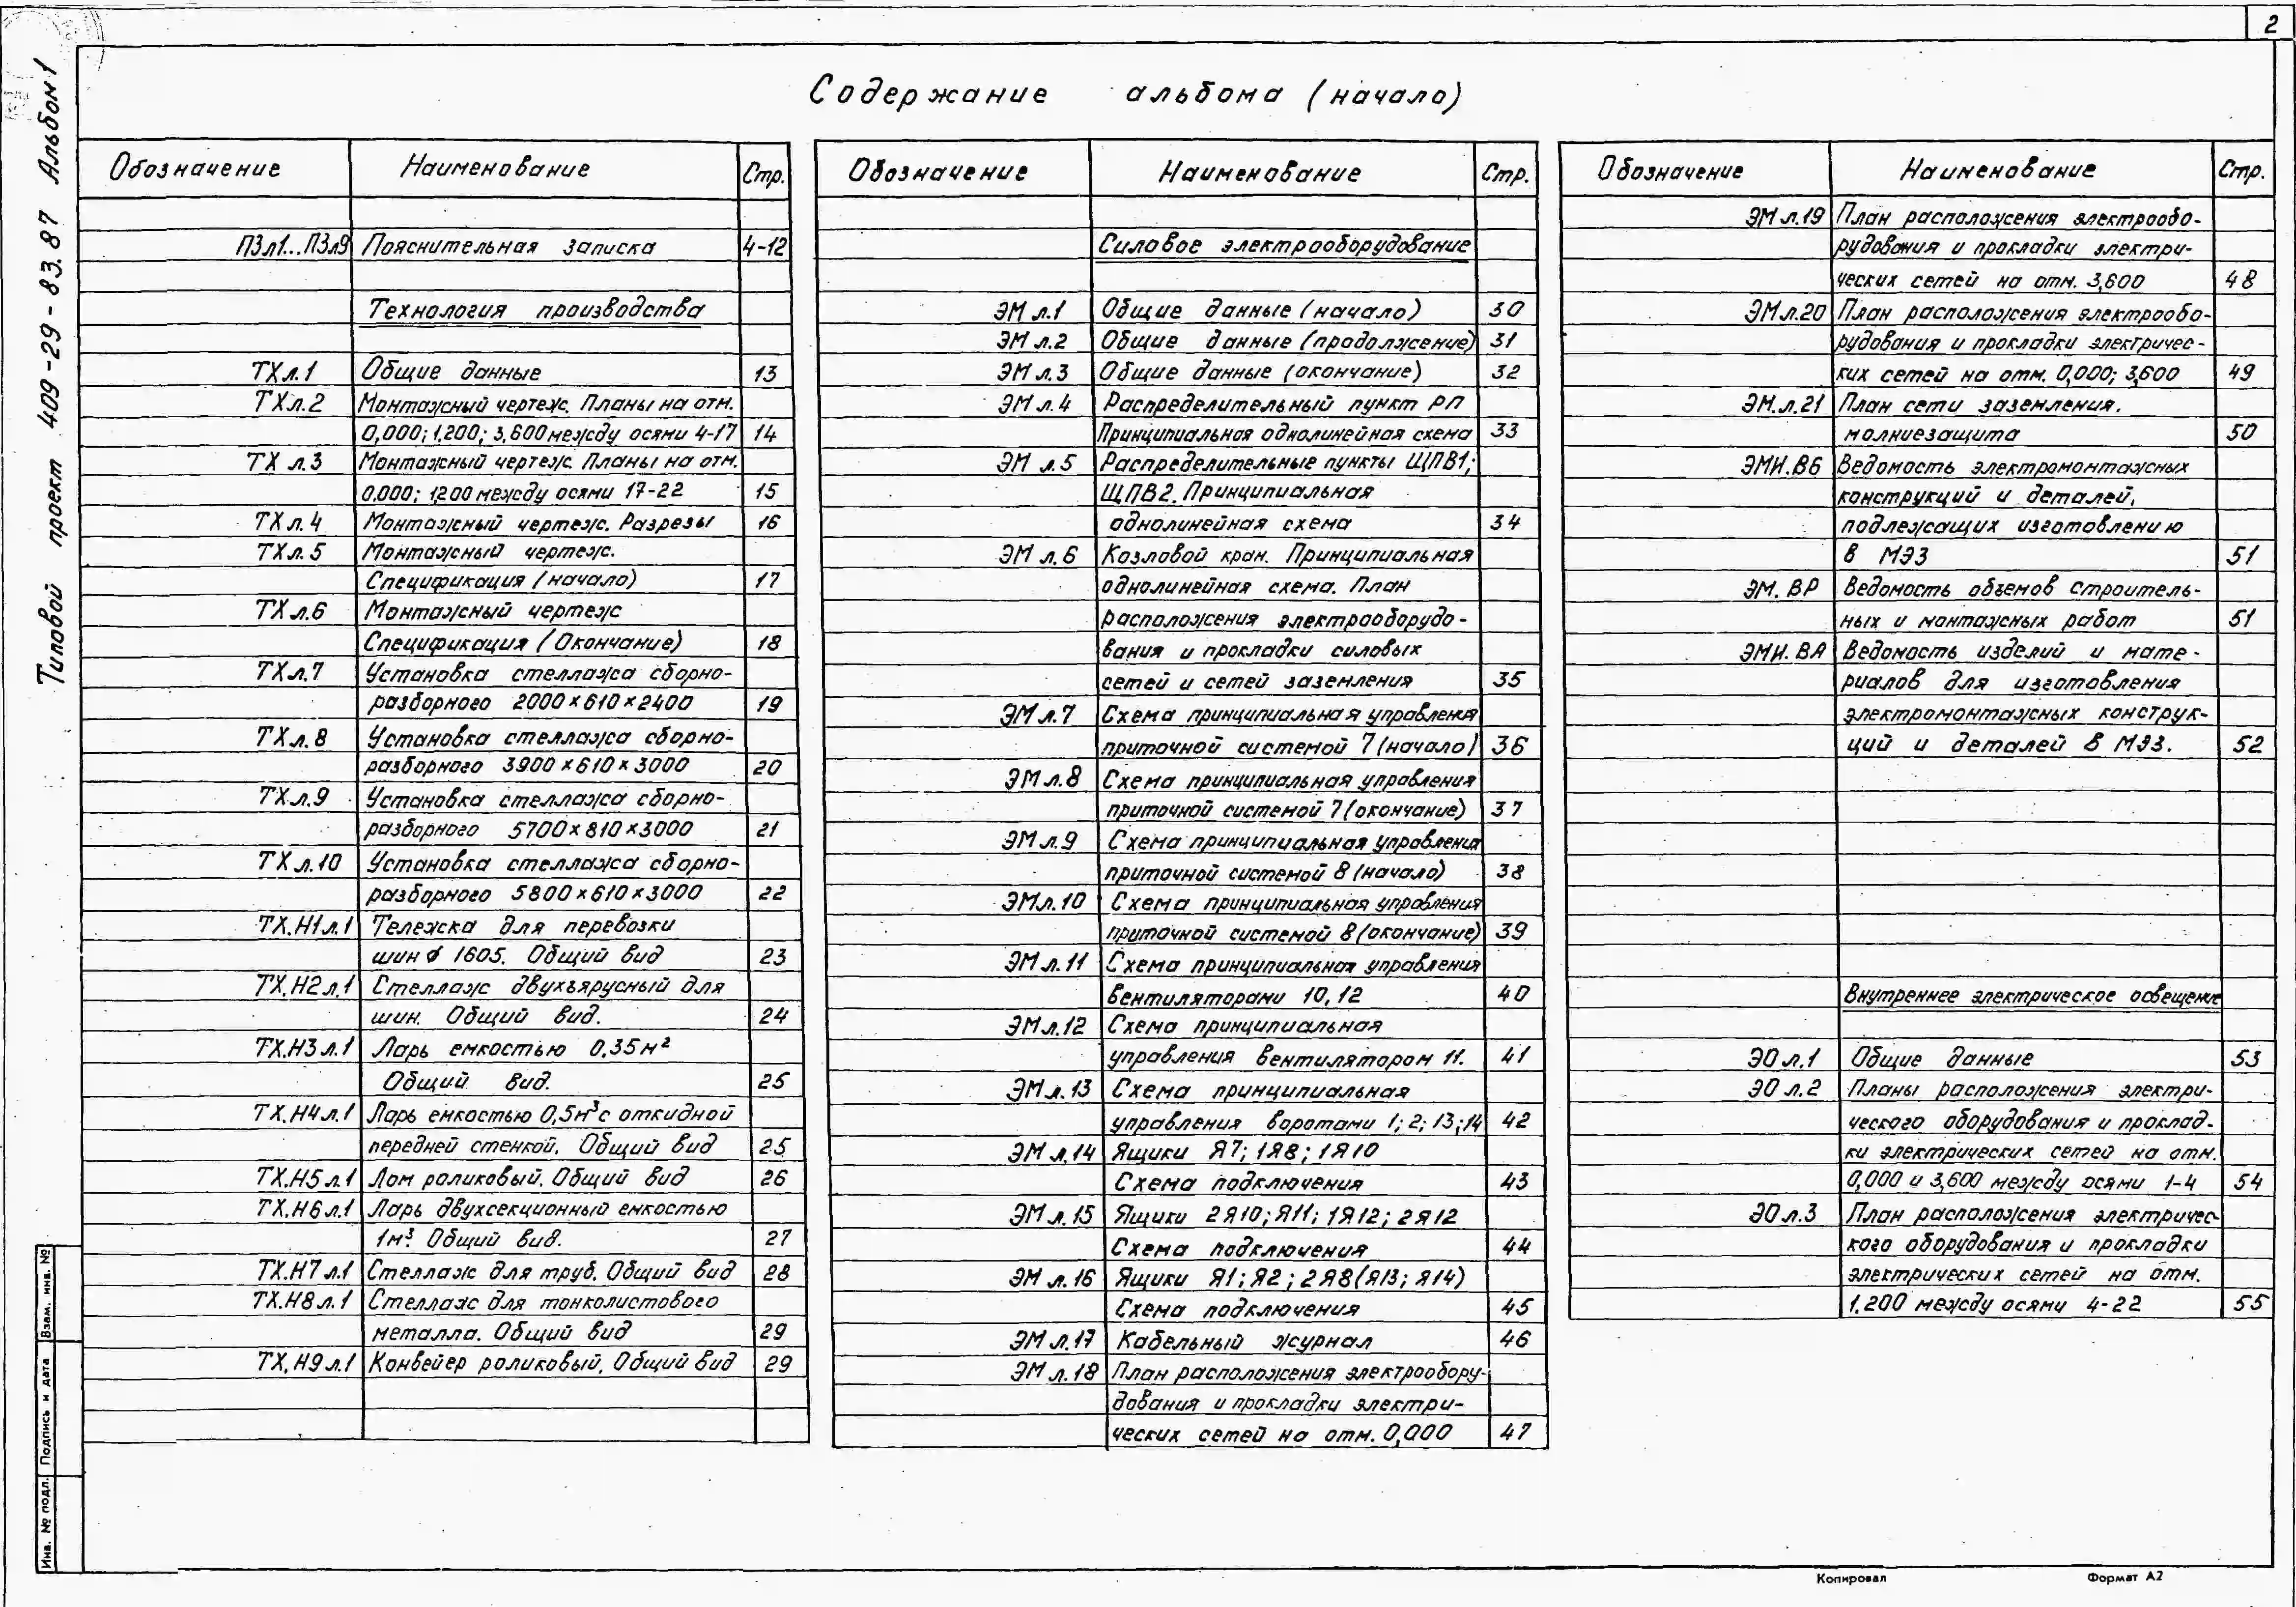 2
Типовой проект 409-29-83.87 Альбом 1
Содержание альбома (начало)
Обозначение Наименование Стр.
ПЗл1...ПЗл9 Пояснительная записка 4-12
Технология производства
ТХл.1 Общие данные 13
ТХл.2 Монтажный чертеж. Планы на отм.
0,000; 1,200; 3,600 между осями 4-17 14
ТХ л.3 Монтажный чертеж. Планы на отм.
0,000; 1,200 между осями 17-22 15
ТХ л.4 Монтажный чертеж. Разрезы 16
ТХл.5 Монтажный чертеж.
Спецификация (начало) 17
ТХл.6 Монтажный чертеж
Спецификация (Окончание) 18
ТХл.7 Установка стеллажа сборно-
разборного 2000×610×2400 19
ТХл.8 Установка стеллажа сборно-
разборного 3900×610×3000 20
ТХл.9 Установка стеллажа сборно-
разборного 5700×810×3000 21
ТХл.10 Установка стеллажа сборно-
разборного 5800×610×3000 22
ТХ.Н1л.1 Тележка для перевозки
шин ⌀ 1605. Общий вид 23
ТХ.Н2л.1 Стеллаж двухъярусный для
шин. Общий вид. 24
ТХ.Н3л.1 Ларь емкостью 0,35м²
Общий вид. 25
ТХ.Н4л.1 Ларь емкостью 0,5м³ с откидной
передней стенкой. Общий вид 25
ТХ.Н5л.1 Лом роликовый. Общий вид 26
ТХ.Н6л.1 Ларь двухсекционный емкостью
1м³. Общий вид. 27
ТХ.Н7л.1 Стеллаж для труб. Общий вид 28
ТХ.Н8л.1 Стеллаж для тонколистового
металла. Общий вид 29
ТХ.Н9л.1 Конвейер роликовый. Общий вид 29
Обозначение Наименование Стр.
Силовое электрооборудование
ЭМ л.1 Общие данные (начало) 30
ЭМ л.2 Общие данные (продолжение) 31
ЭМ л.3 Общие данные (окончание) 32
ЭМ л.4 Распределительный пункт РП
Принципиальная однолинейная схема 33
ЭМ л.5 Распределительные пункты ЩПВ1;
ЩПВ2. Принципиальная
однолинейная схема 34
ЭМ л.6 Козловой кран. Принципиальная
однолинейная схема. План
расположения электрооборудо-
вания и прокладки силовых
сетей и сетей заземления 35
ЭМ л.7 Схема принципиальная управления
приточной системой 7 (начало) 36
ЭМ л.8 Схема принципиальная управления
приточной системой 7 (окончание) 37
ЭМ л.9 Схема принципиальная управления
приточной системой 8 (начало) 38
ЭМл.10 Схема принципиальная управления
приточной системой 8 (окончание) 39
ЭМ л.11 Схема принципиальная управления
вентиляторами 10, 12 40
ЭМ л.12 Схема принципиальная
управления вентилятором 11. 41
ЭМ л.13 Схема принципиальная
управления воротами 1; 2; 13; 14 42
ЭМ л.14 Ящики Я7; 1Я8; 1Я10
Схема подключения 43
ЭМ л.15 Ящики 2Я10; Я11; 1Я12; 2Я12
Схема подключения 44
ЭМ л.16 Ящики Я1; Я2; 2Я8 (Я13; Я14)
Схема подключения 45
ЭМ л.17 Кабельный журнал 46
ЭМ л.18 План расположения электрообору-
дования и прокладки электри-
ческих сетей на отм. 0,000 47
Обозначение Наименование Стр.
ЭМ л.19 План расположения электрообо-
рудования и прокладки электри-
ческих сетей на отм. 3,600 48
ЭМл.20 План расположения электрообо-
рудования и прокладки электричес-
ких сетей на отм. 0,000; 3,600 49
ЭМ.л.21 План сети заземления.
молниезащита 50
ЭМИ.В6 Ведомость электромонтажных
конструкций и деталей,
подлежащих изготовлению
в МЭЗ 51
ЭМ. ВР Ведомость объемов строитель-
ных и монтажных работ 51
ЭМИ.ВА Ведомость изделий и мате-
риалов для изготовления
электромонтажных конструк-
ций и деталей в МЭЗ. 52
Внутреннее электрическое освещение
ЭО л.1 Общие данные 53
ЭО л.2 Планы расположения электри-
ческого оборудования и проклад-
ки электрических сетей на отм.
0,000 и 3,600 между осями 1-4 54
ЭО л.3 План расположения электричес-
кого оборудования и прокладки
электрических сетей на отм.
1.200 между осями 4-22 55
Инв. № подл. Подпись и дата Взам. инв. №
Копировал Формат А2